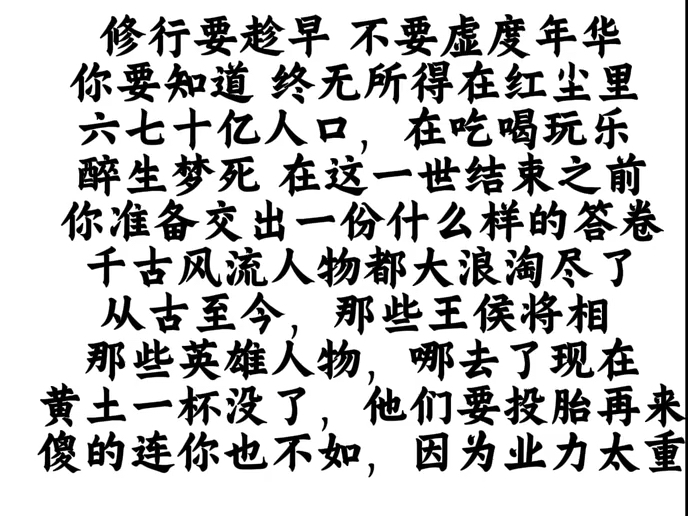 修行要趁早 不要虚度年华
你要知道 终无所得在红尘里
六七十亿人口，在吃喝玩乐
醉生梦死 在这一世结束之前
你准备交出一份什么样的答卷
千古风流人物都大浪淘尽了
从古至今，那些王侯将相
那些英雄人物，哪去了现在
黄土一杯没了，他们要投胎再来
傻的连你也不如，因为业力太重